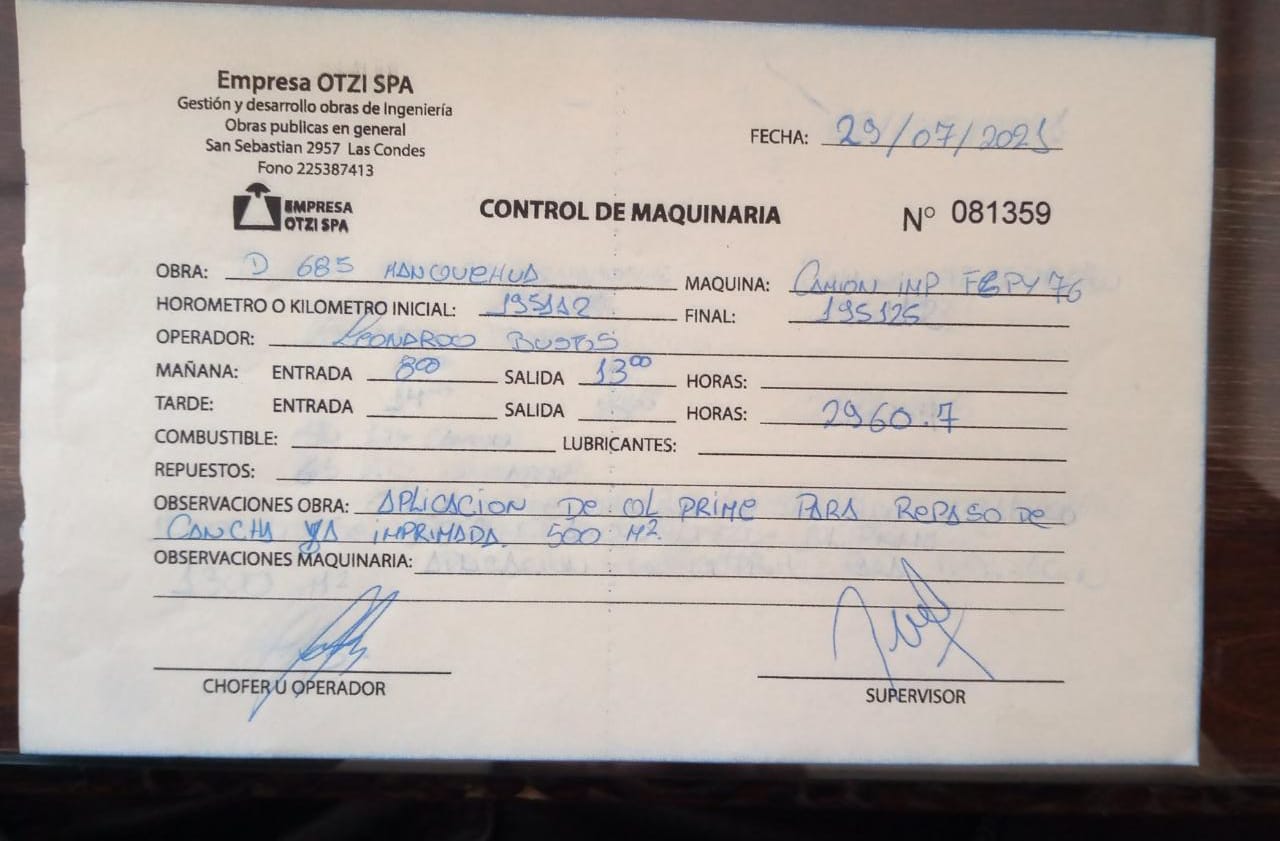 Empresa OTZI SPA
Gestión y desarrollo obras de Ingeniería
Obras publicas en general
San Sebastian 2957 Las Condes
Fono 225387413
FECHA: 29/07/2025
EMPRESA
OTZI SPA
CONTROL DE MAQUINARIA
N° 081359
OBRA: D 685 MANQUEHUA MAQUINA: CAMION IMP
HOROMETRO O KILOMETRO INICIAL: 195112 FINAL: 195125
OPERADOR: LEONARDO BUSTOS
MAÑANA: ENTRADA 8:00 SALIDA 13:00 HORAS:
TARDE: ENTRADA SALIDA HORAS: 2960.7
COMBUSTIBLE: LUBRICANTES:
REPUESTOS:
OBSERVACIONES OBRA: APLICACION DE COL PRIME PARA REPASO DE
CANCHA YA IMPRIMADA 500 M2
OBSERVACIONES MAQUINARIA:
CHOFER U OPERADOR
SUPERVISOR